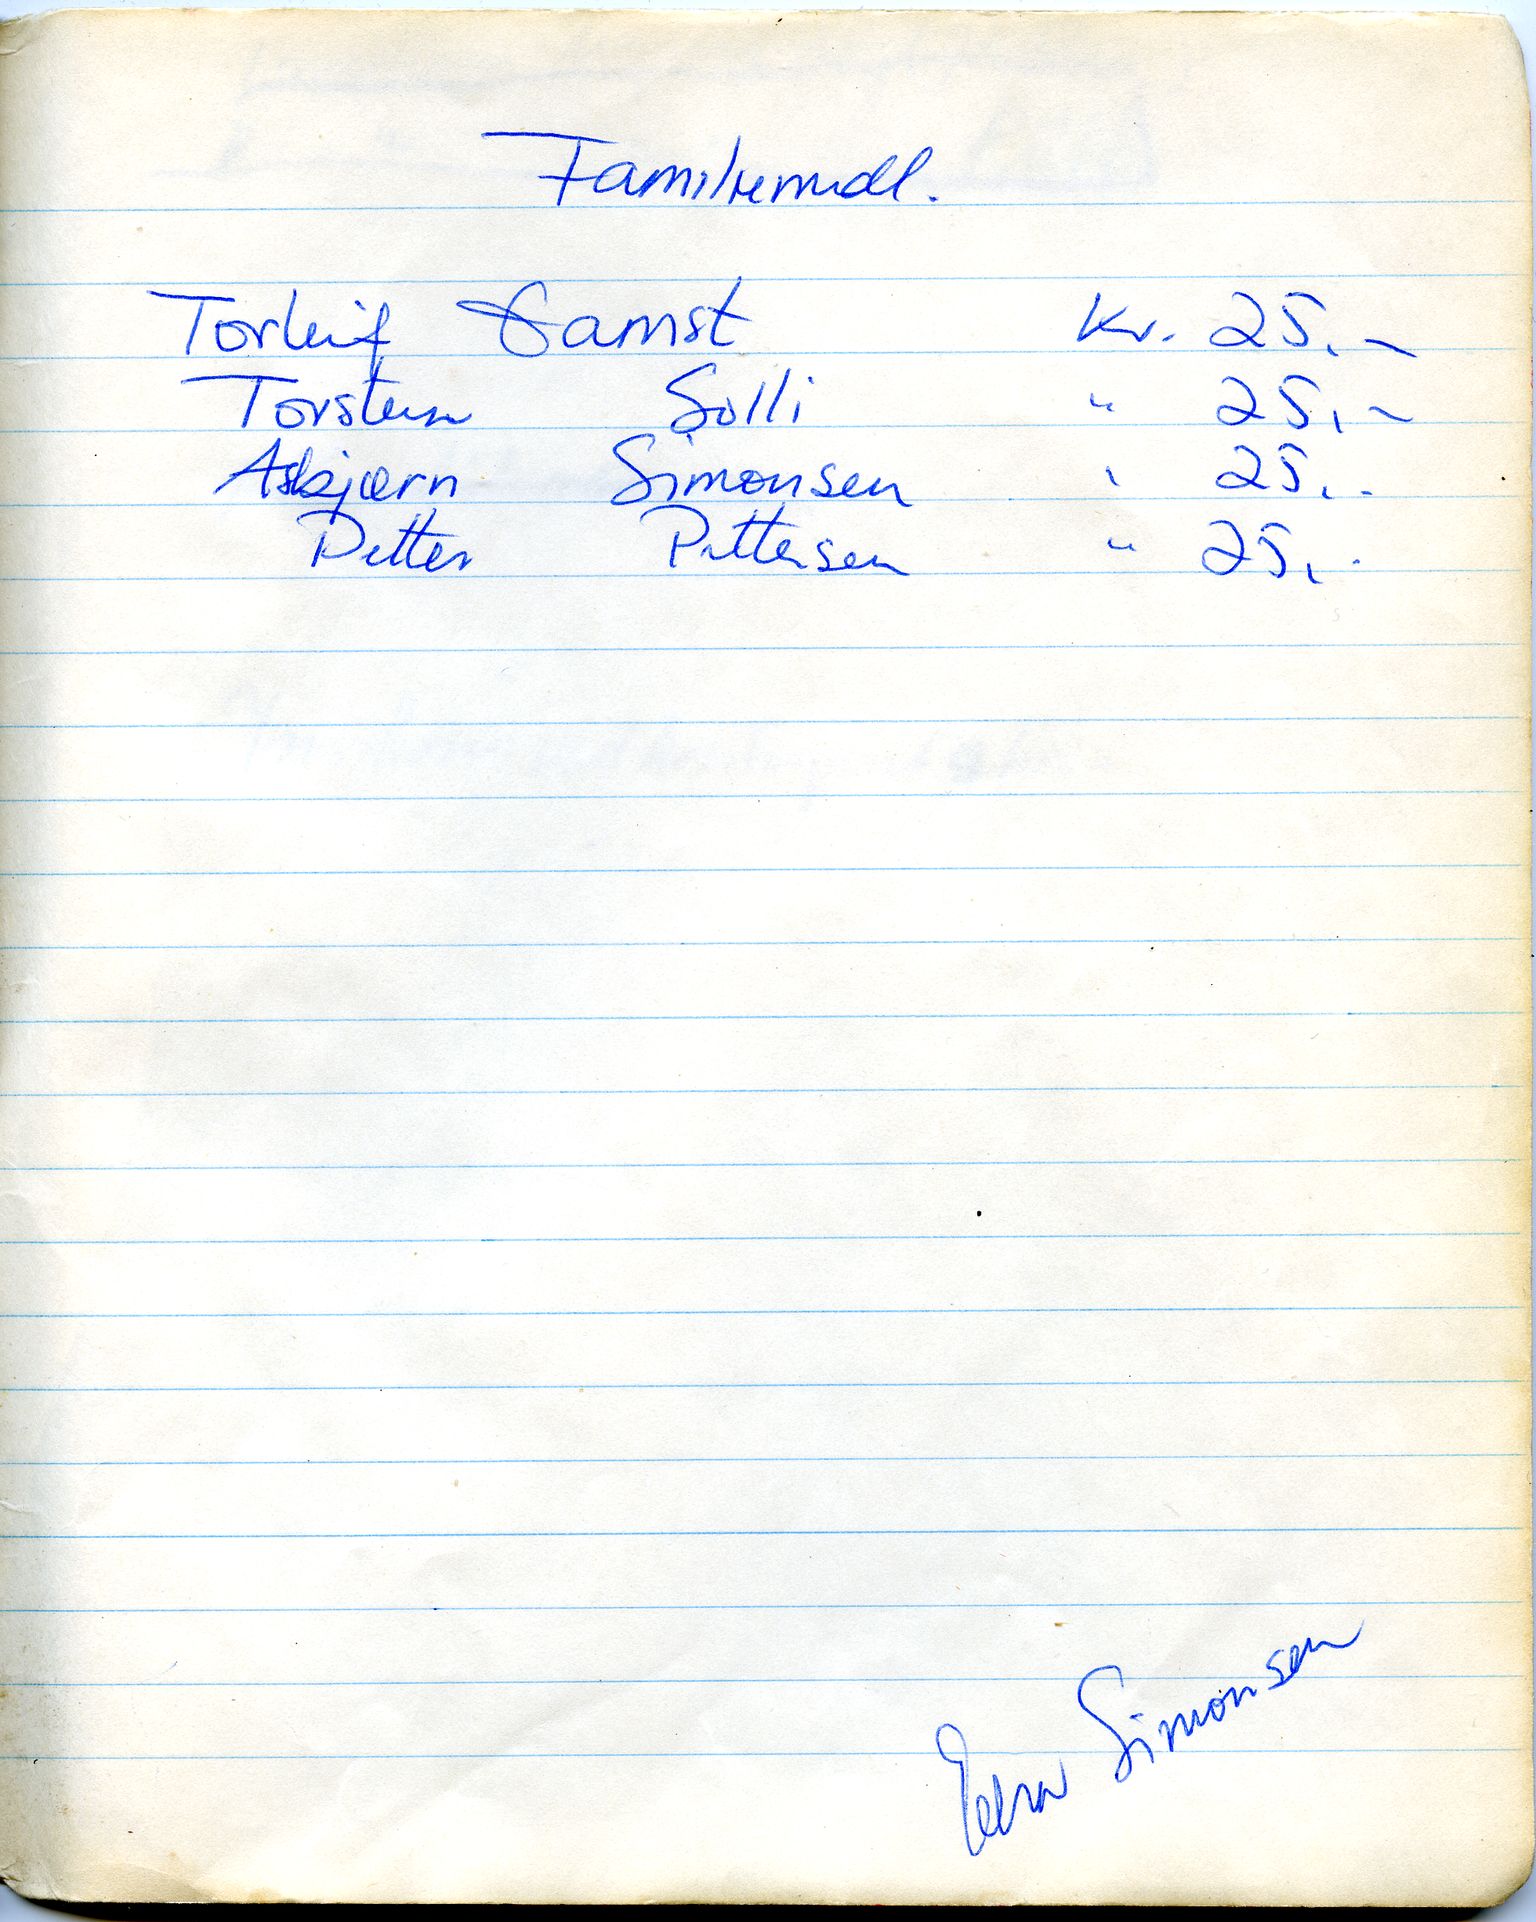 Familiemedl.
Torleif Samst Kr. 25.-
Torstein Solli " 25,-
Asbjørn Simonsen " 25,-
Petter Pettersen " 25,-
Simonsen